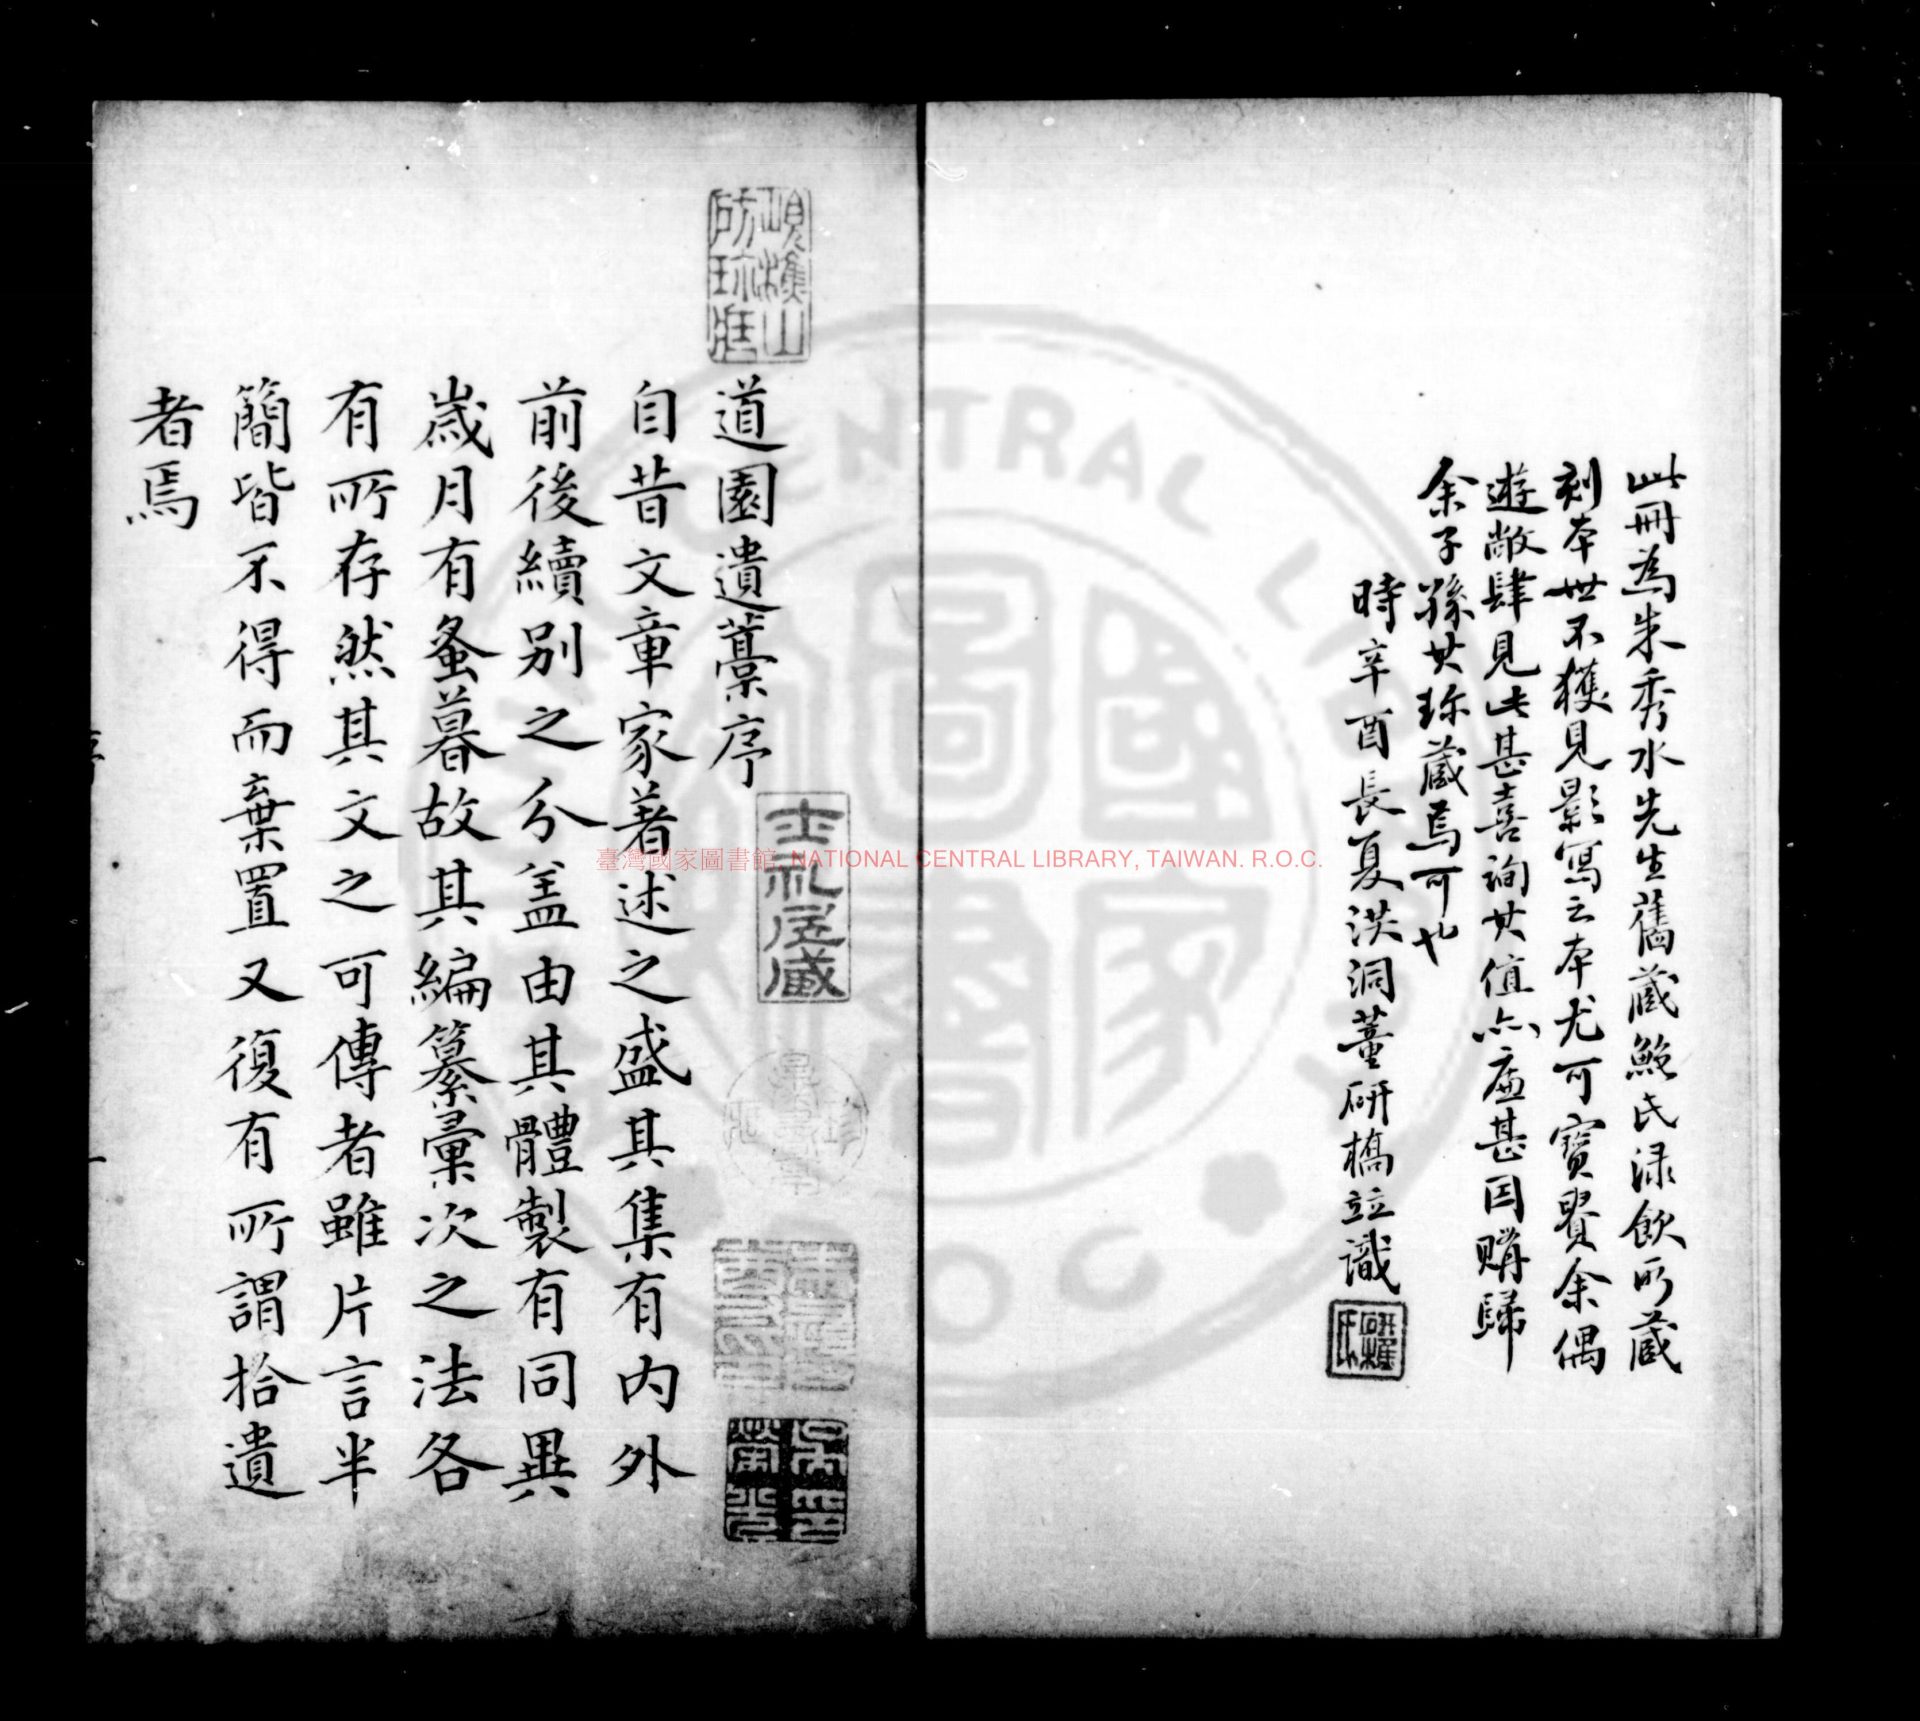 此冊為朱秀水先生舊蔵鮑氏渌飲所蔵
刻本世不獲見影寫之本尤可寳貴余偶
遊敝肆見此甚喜詢其值亦廉甚因購歸
余子孫其珎蔵焉可也
時辛酉長夏洪洞董研樵並識
道園遺藁序
自昔文章家著述之盛其集有内外
前後續别之分盖由其體製有同異
歲月有蚤暮故其編纂彙次之法各
有所存然其文之可傳者雖片言半
簡皆不得而棄置又復有所謂拾遺
者焉
士礼居蔵
臺灣國家圖書館, NATIONAL CENTRAL LIBRARY, TAIWAN. R.O.C.